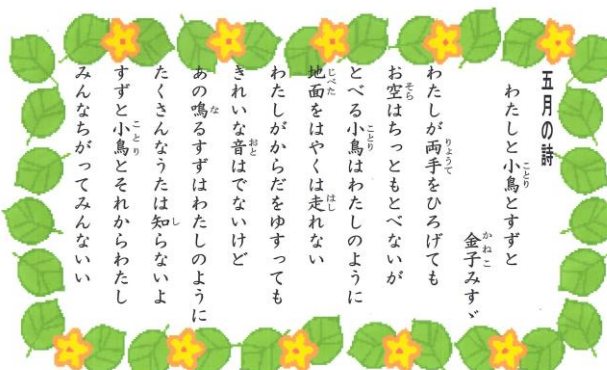 五月の詩
わたしと小鳥とすずと
金子みすゞ
わたしが両手をひろげても
お空はちっともとべないが
とべる小鳥はわたしのように
地面をはやくは走れない
わたしがからだをゆすっても
きれいな音はでないけど
あの鳴るすずはわたしのように
たくさんなうたは知らないよ
すずと小鳥とそれからわたし
みんなちがってみんないい